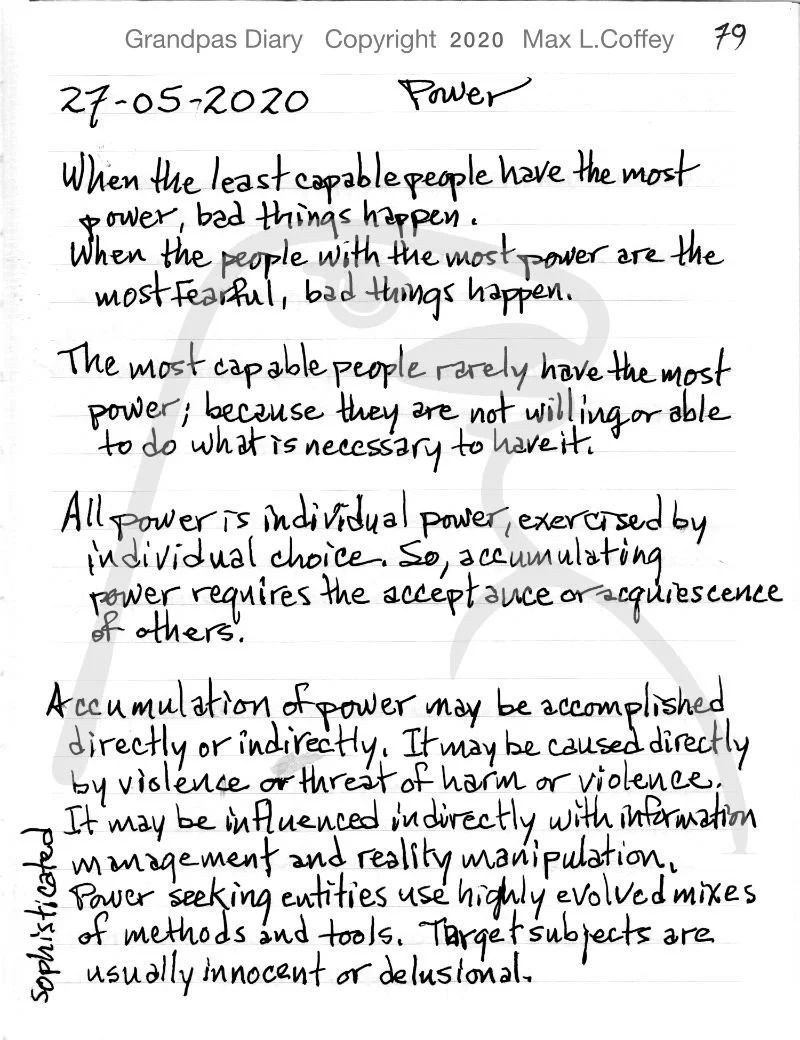 Grandpas Diary Copyright 2020 Max L.Coffey 79
27-05-2020 Power
When the least capable people have the most
power, bad things happen.
When the people with the most power are the
most fearful, bad things happen.
The most capable people rarely have the most
power; because they are not willing or able
to do what is necessary to have it.
All power is individual power, exercised by
individual choice. So, accumulating
power requires the acceptance or acquiescence
of others.
Accumulation of power may be accomplished
directly or indirectly. It may be caused directly
by violence or threat of harm or violence.
It may be influenced indirectly with information
management and reality manipulation.
Power seeking entities use highly evolved mixes
of methods and tools. Target subjects are
usually innocent or delusional.
sophisticated